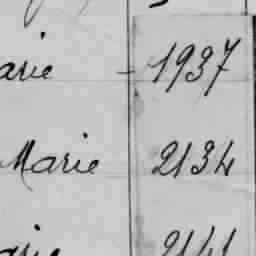 arie - 1937
Marie 2134
arie 2141